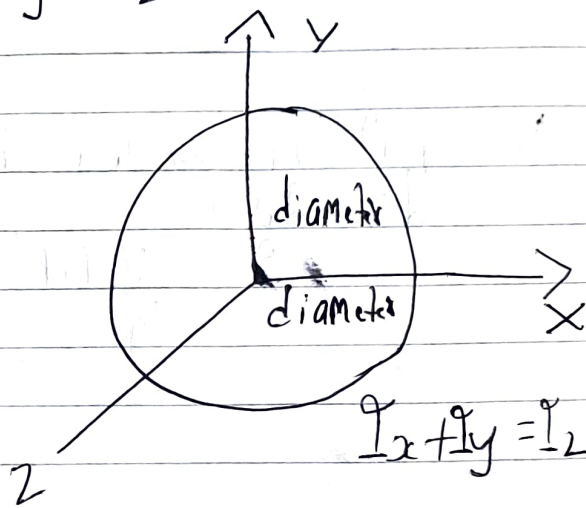 y
diameter
diameter
X
Z
Ix + Iy = Iz